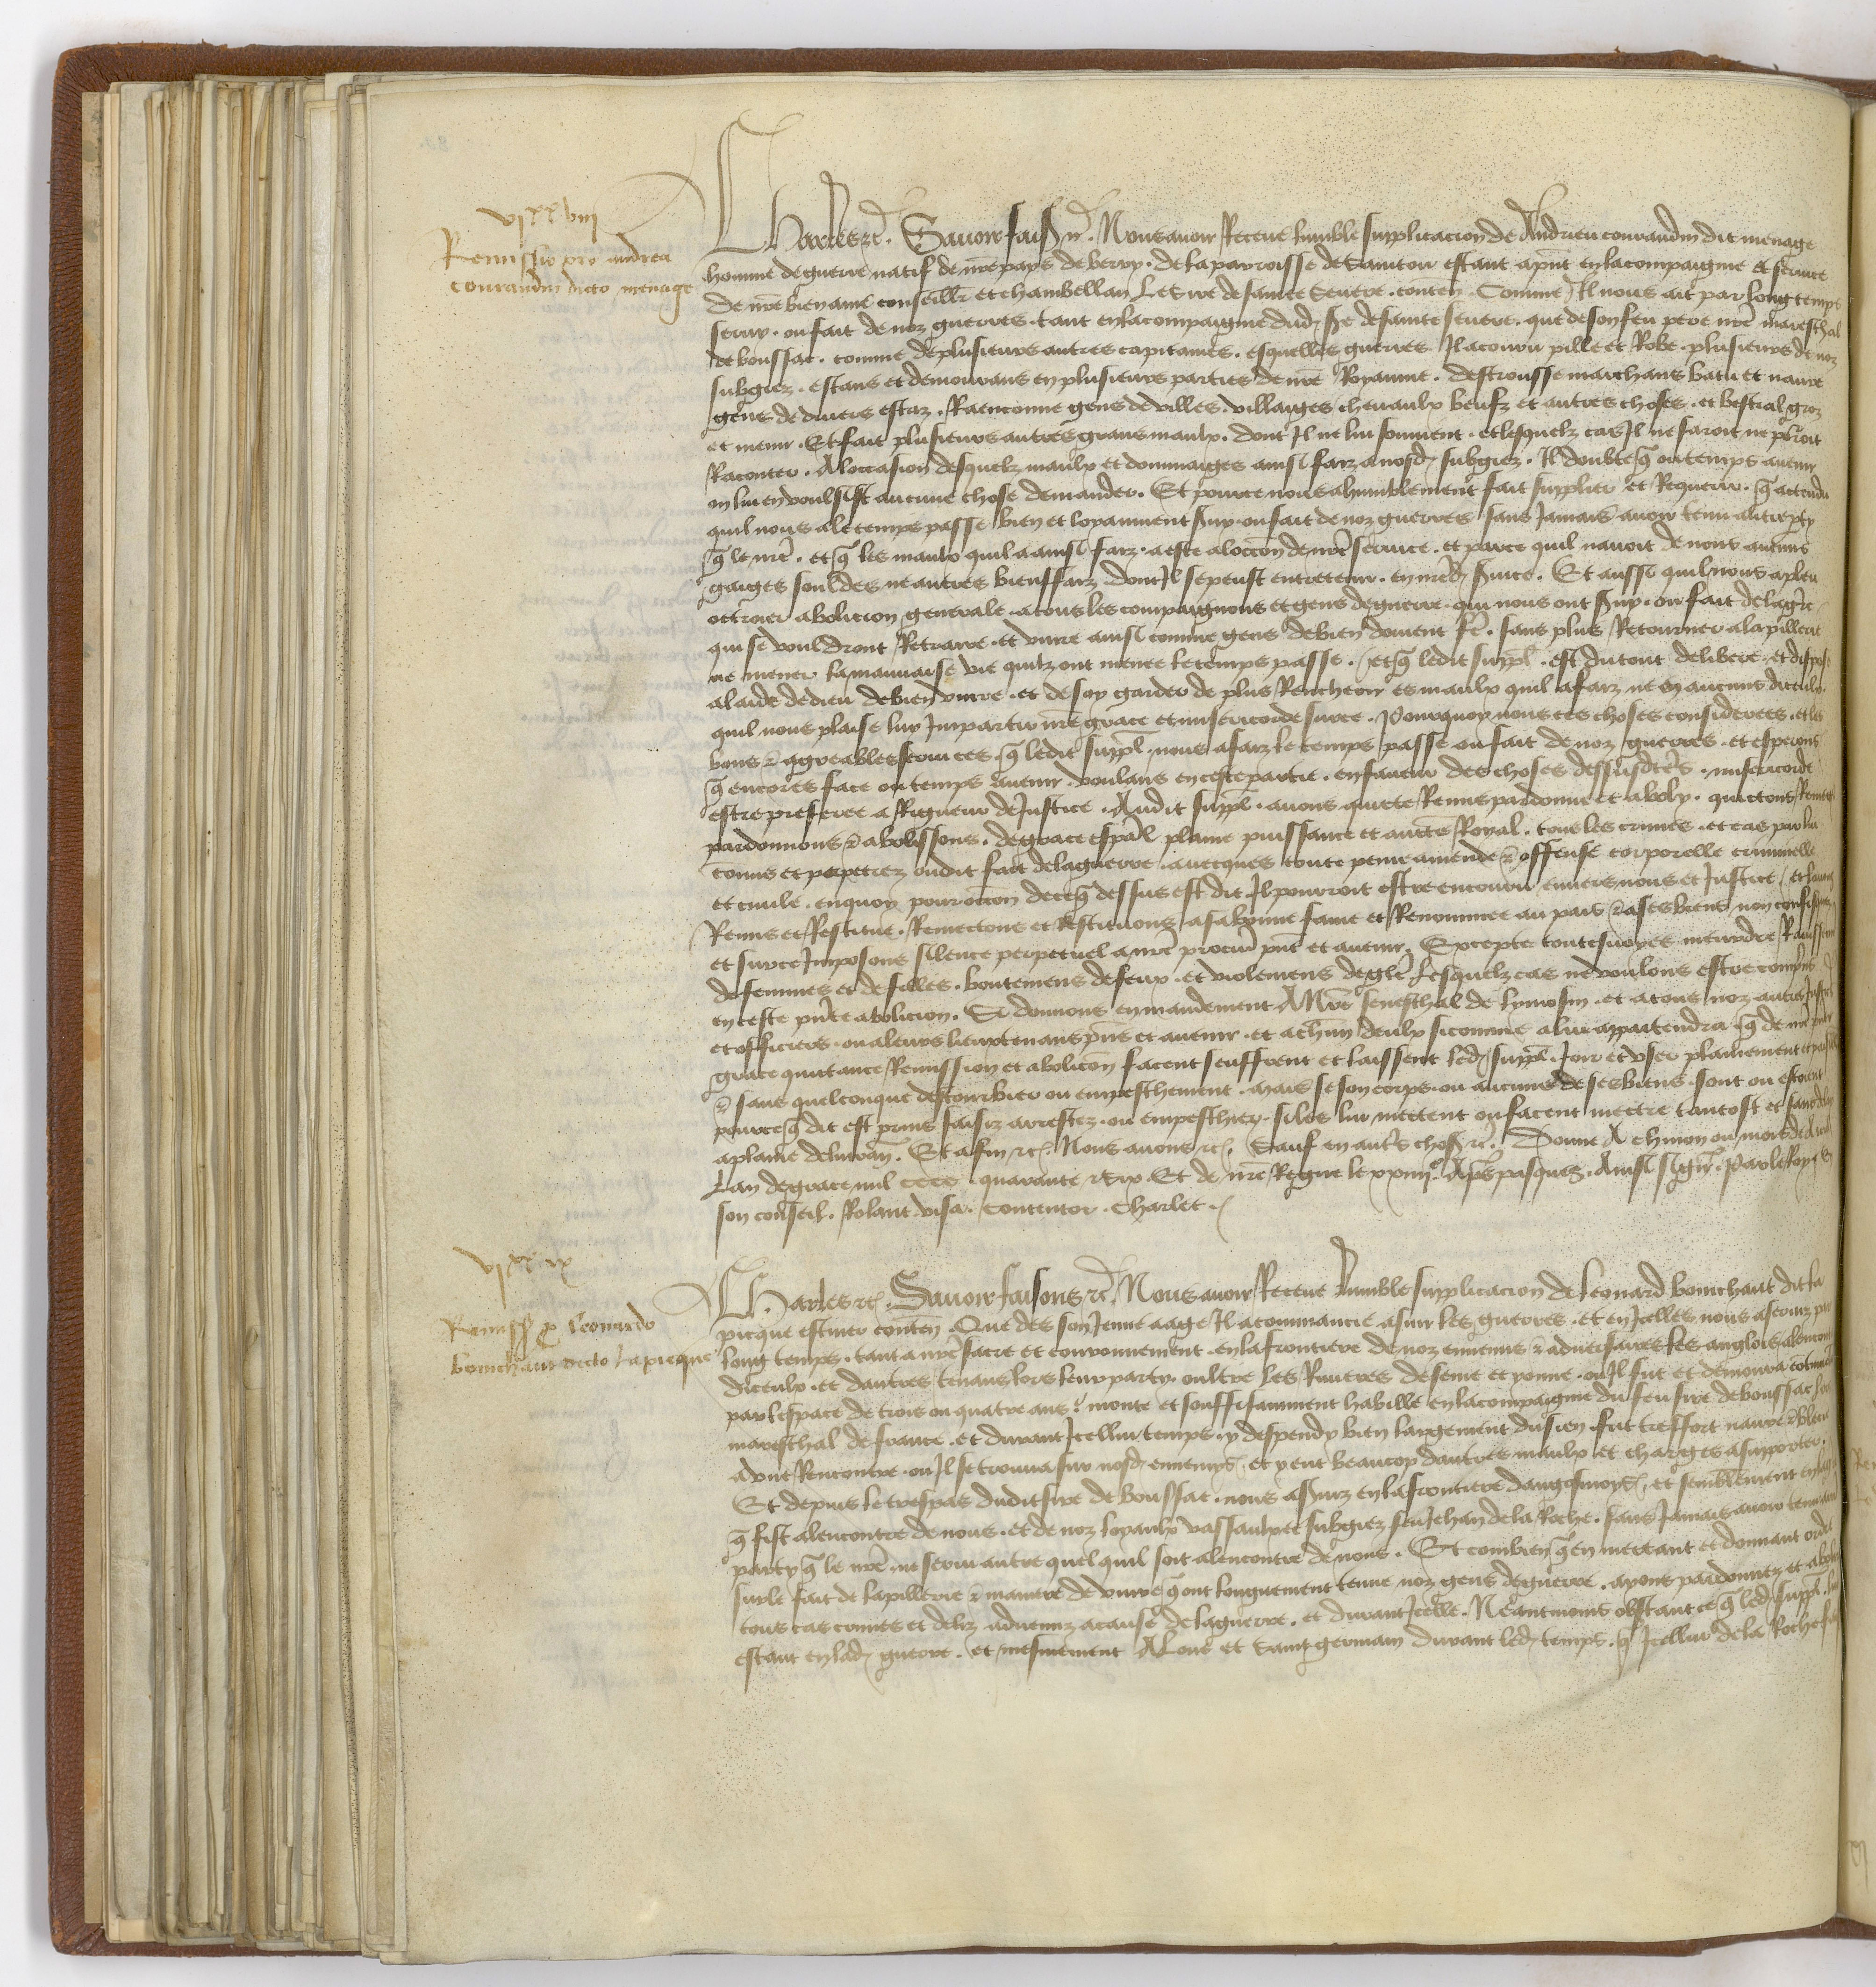 vixxviii
Remissio pro andrea
courandin dicto menage
Charles etc. Savoir fais etc. Nous avoir Receue humble supplicacion de Andrieu courandin dit menage
homme de guerre natif de nre pays de berry. de la parroisse de estant apnt en la compaignie et service
de nre bien amé conseillr et chambellan Le Sire de saincte Severe. conten. Comme Il nous ait par long temps
servy. ou fait de noz guerres. tant en la compaignie dud sr de sainte severe. que de son feu pere nre mareschal
de boussac. comme de plusieurs autres capitaines. esquelles guerres Il a couru pille et Robe. plusieurs de noz
subgiez. estans et demourans en plusieurs parties de nre Royaume. destrousse marchans batu et navre
gens de divers estaz. Raenconne gens de villes. villaiges chevaulx beufz et autres choses. et bestial groz
et menu. Et fait plusieurs autres grans maulx. dont Il ne lui souvient. et lesquelz cas Il ne saroit ne pourroit
Raconter. A loccasion desquelz maulx et dommaiges ainsi faiz a nosd subgiez. Il doubte q ou temps avenir
on lui en voulsist aucune chose demander. Et pource nous a humblement fait supplier et Requerir. q actendu
quil nous a le temps passe bien et loyaument suy ou fait de noz guerres sans Jamais avoir tenu autre pty
q le nre. et q les maulx quil a ainsi faiz. a este a loccon de nre service. et parce quil navoit de nous aucuns
gaiges souldes ne autres bienffaiz dont Il se peust entretenir. en nred suice. Et aussi quil nous a pleu
octroier abolicion generale. a tous les compaignons et gens de guerre. qui nous ont suy. ou fait de la gre
qui se vouldront Retraire. et vivre ainsi comme gens de bien doivent fe. sans plus Retourner a la pillerie
ne mener la mauvaise vie quilz ont menee le temps passe. et q ledit suppl. est du tout delibere. et dispose
a laide de dieu de bien vivre. et de soy garder de plus Rencheoir es maulx quil a faiz ne en aucuns diceulx.
quil nous plaise luy Impartir nre grace et misericorde sur ce. Pourquoy nous ces choses considerees. et les
bons et agreables services. q ledit suppl. nous a faiz le temps passe ou fait de noz guerres. et esperons
q encores face ou temps avenir voulans en ceste partie. en faveur des choses dessusdtes. misericorde
estre preferee a Rigueur de Justice. Audit suppl. avons quicte Remis pardonne et aboly. quictons Remectons
pardonnons et abolissons. de grace espal plaine puissance et aucte Royal. tous les crimes. et cas par lui
commis et perpetrez oudit fait de la guerre. avecques toute peine amende et offense corporelle criminelle
et civile. en quoy pour occon de ce q dessus est dit Il pourroit estre encouru envers nous et Justice. et lavons
Remis et Restitue. Remectons et Restituons a sa bonne fame et Renommee au pais et a ses biens non confisquez
et sur ce Imposons silence perpetuel a nre procur pnt et avenir. Excepte toutesvoyes meurdre Ravissement
de femmes et de filles. boutemens de feux. et violemens deglises Lesquelz cas ne voulons estre comprins
en ceste pnte abolicion. Si donnons en mandement A Nre seneschal de lymosin. et a tous noz autres Justic
et officiers. ou a leurs lieuxtenans pns et avenir. et a chun deulx si comme a lui appartendra q de nre pnt
grace quictance Remission et abolicon facent seuffrent et laissent led suppl. Joir et user plainement et paisibl
et sans quelconque destourbier ou empeschement. mais se son corps. ou aucuns de ses biens. sont ou estoient
pource q dit est prins saisiz arrestez. ou empeschiez. si les lui mectent ou facent mectre tantost et sans delay
a plaine delivran. Et afin etc. Nous avons etc. Sauf en auts choss etc. Donne A chinon ou mois de
Lan de grace mil cccc. quarante et six Et de nre Regne le xxiiii. Aps pasques. Ainsi signe. Par le Roy en
son conseil. Rolant visa. Contentor. Charlet.
vixx ix
Remiss p Leonardo
bouchaut dicto lapicque
Charles etc. Savoir faisons etc. Nous avoir Receue humble supplicacion de Leonard bouchaut dit la
picque conten Que des son Jeune aage Il a commancie a suir les guerres. et en Icelles nous a serviz par
long temps. tant a nre sacre et couronnement. en la frontiere de noz ennemis et adversaires les anglois alencontre
diceulx. et dautres tenans lors leur party. oultre les Rivieres de seine et yonne. ou Il fut et demoura continuel
par lespace de trois ou quatre ans. monte et souffisamment habille en la compaignie du feu sire de boussac lors
mareschal de france. et durant Icellui temps. y despendy bien largement du sien. fut tresfort navre et blecie
a une Rencontre. ou Il se trouva sur nosd ennemys. et y eut beaucop dautres maulx et charges a supporter.
Et depuis le trespas dudit sire de boussac. nous a serviz en la frontiere dangosmoys. et semblement en
q fist alencontre de nous. et de noz loyaulx vassaulx et subgiez feu Jehan de la Roche. sans Jamais avoir tenu autre
party q le nre. ne servi autre quel quil soit alencontre de nous. Et combien q en mectant et donnant ordre
sur le fait de la pillerie et maniere de vivre q ont longuement tenue noz gens de guerre. ayons pardonnez et aboliz
tous cas crimes et deliz advenuz a cause de la guerre. et durant Icelle. Neantmoins obstant ce q led suppl. lui
estant en lad guerre. et mesmement A Loue et saint germain durant led temps. q Icellui de la Roche